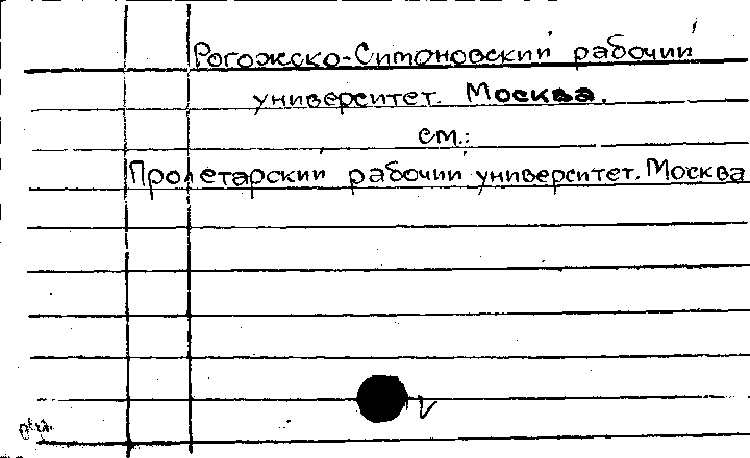 Рогожско-Симоновский рабочий
университет. Москва.
см.:
Пролетарский рабочий университет. Москва